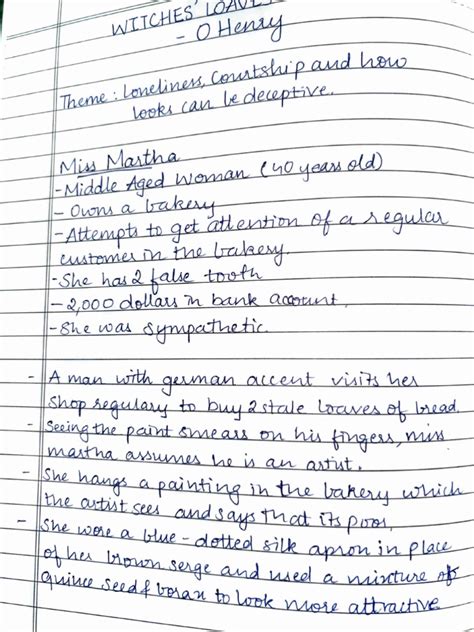 WITCHES' LOAVE
- O Henry
Theme : Loneliness, Courtship and how
looks can be deceptive.
Miss Martha
- Middle Aged Woman (40 years old)
- Owns a bakery
- Attempts to get attention of a regular
customer in the bakery.
- She has 2 false tooth
- 2,000 dollars in bank account.
- She was sympathetic.
- A man with german accent visits her
shop regulary to buy 2 stale loaves of bread.
- Seeing the paint smears on his fingers, miss
martha assumes he is an artist.
- She hangs a painting in the bakery which
the artist sees and says that its poor.
- She wore a blue-dotted silk apron in place
of her brown serge and used a mixture of
quince seed & borax to look more attractive